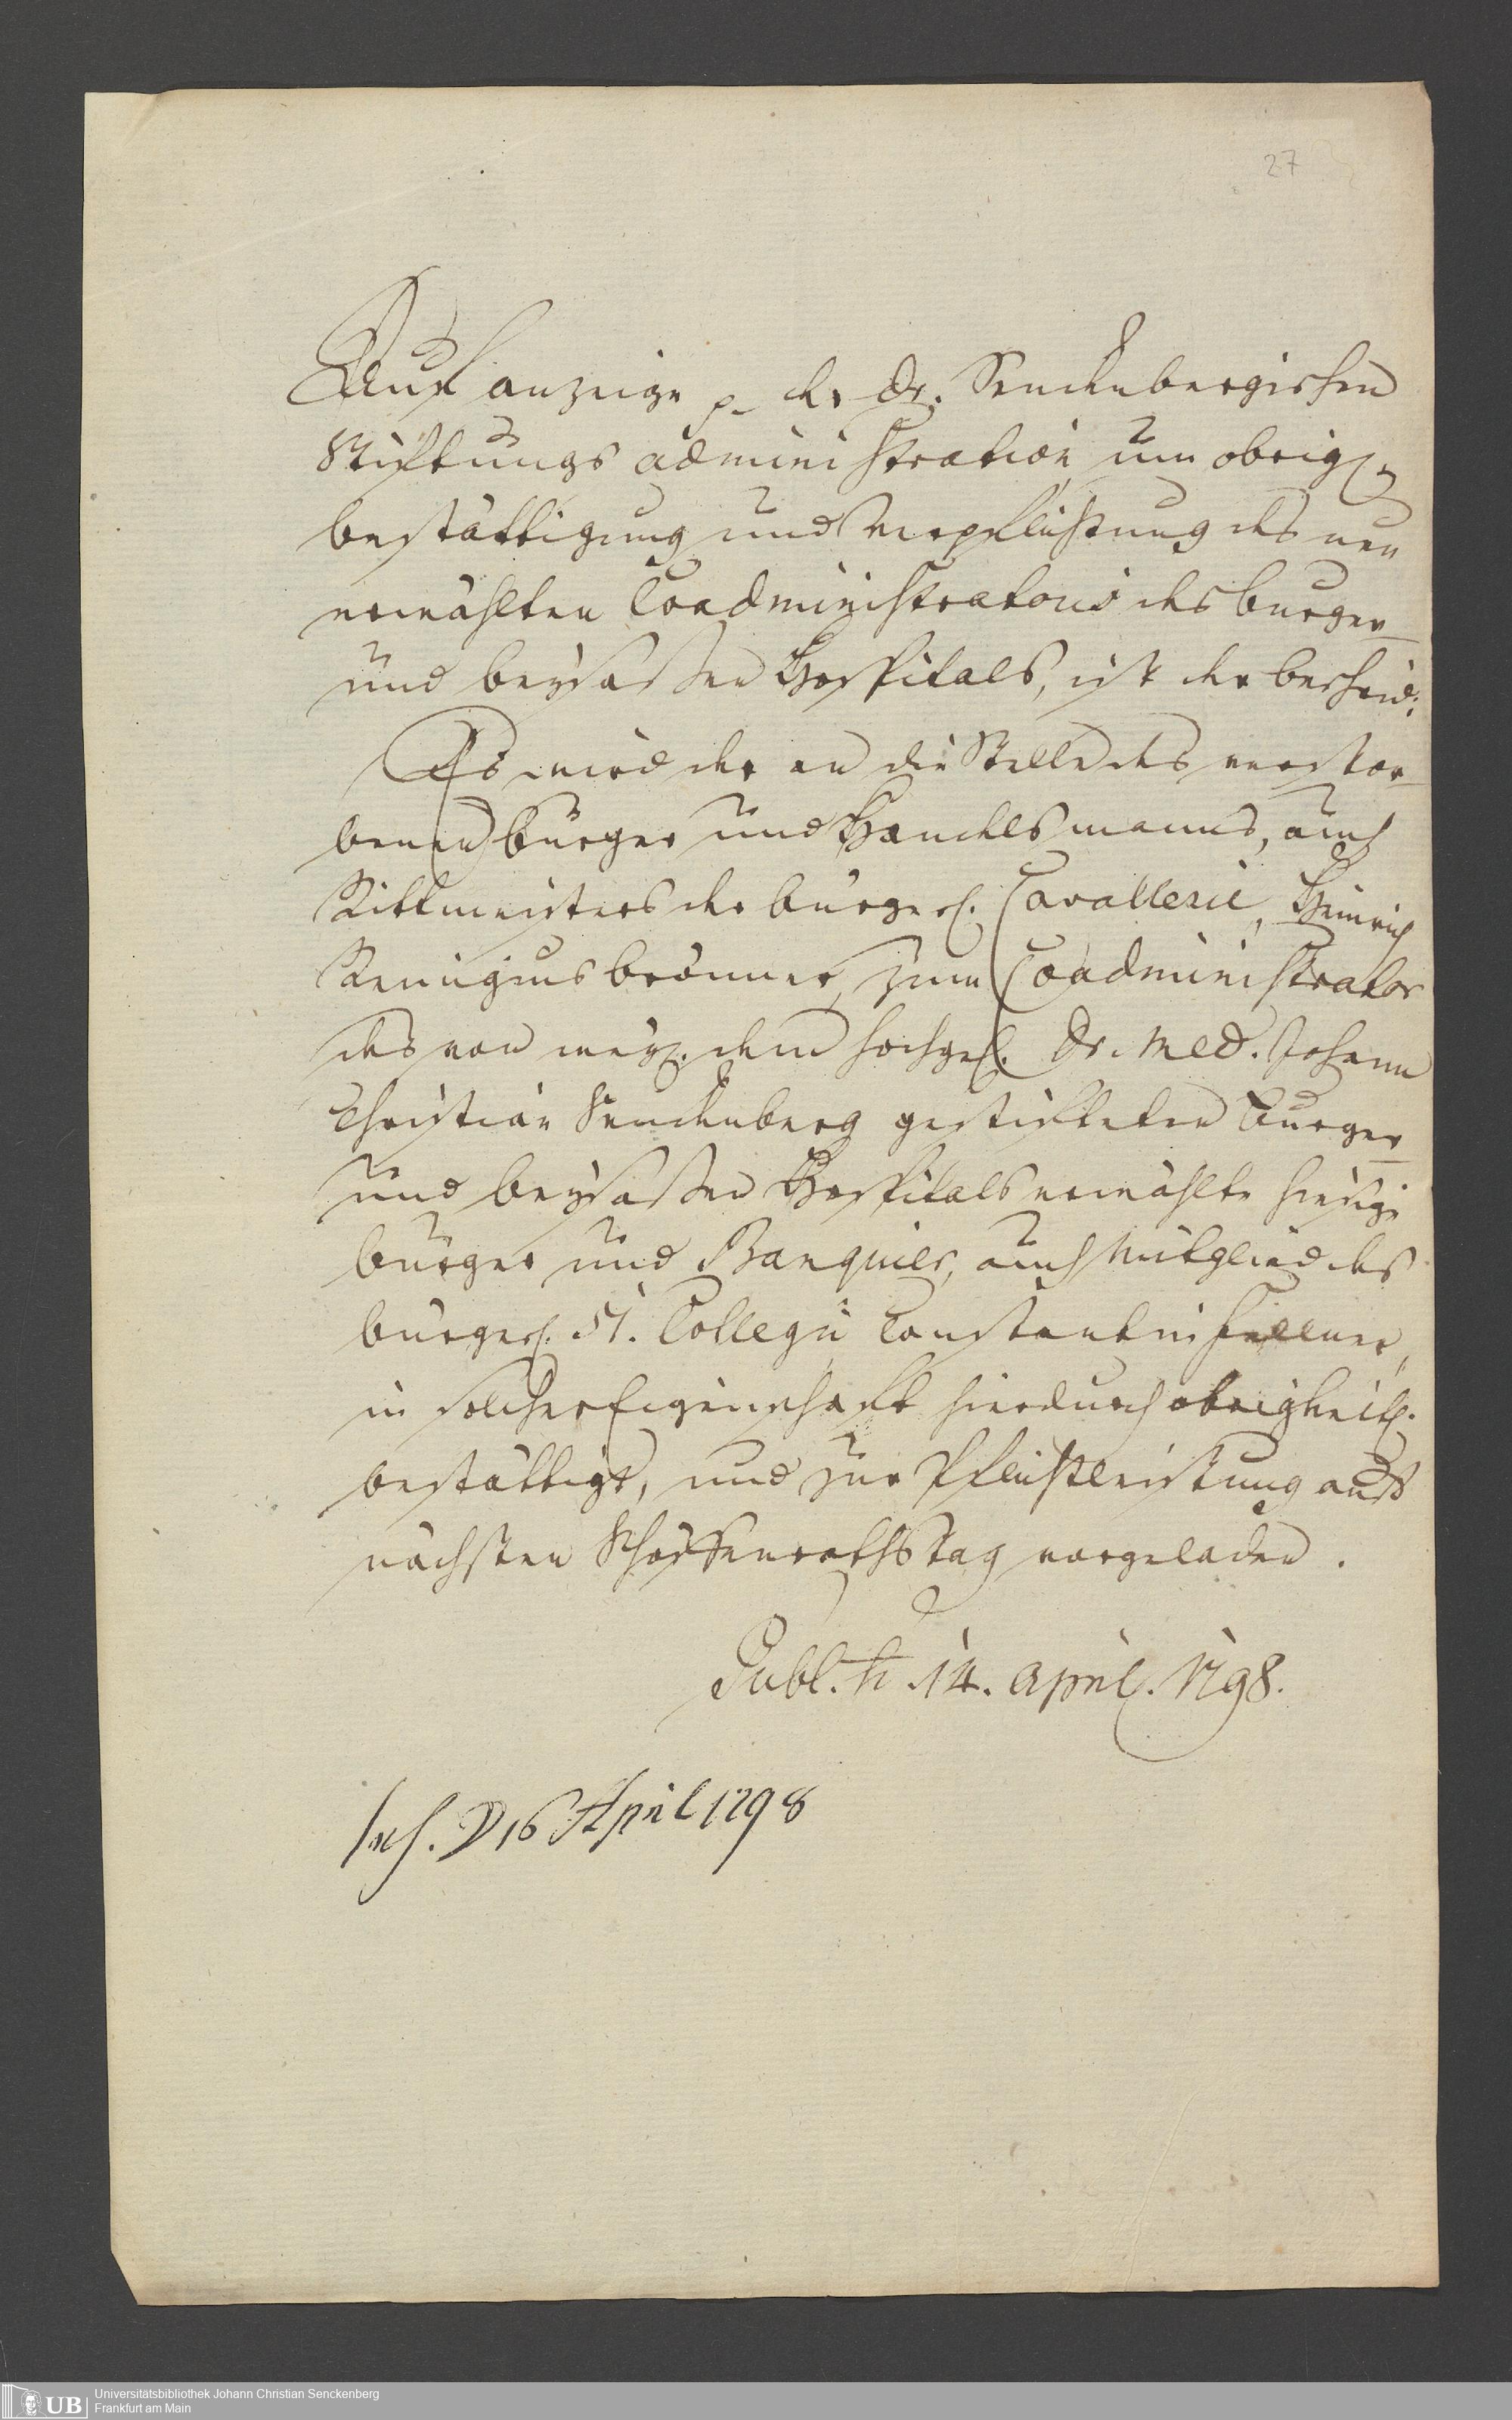 27
Auf anzeige p. der Dr. Senckenbergischen
Stiftungs administration um obrigk.
bestättigung und Verpflichtung des neu
erwählten Coadministratoris des burger
und beysassen Hospitals, ist der bescheid:
Es wird der an die Stelle des verstor
benen burger und Handelsmanns, auch
Rittmeisters der burgerl. Cavallerie, Heinrich
Remigius brönner, zum Coadministrator
des von weyl. dem hochgel. Dr. Med. Johann
Christian Senckenberg gestifteten Burger
und beysassen Hospitals erwählte hiesige
burger und Banquier, auch Mitglied des
burgerl. 51. Collegii Constantin Fellner,
in solcher Eigenschaft hierdurch obrigkeitl.
bestättigt, und zur Pflichtleistung aufs
nächsten Schöffenrathstag vorgeladen.
Publ. 14. April. 1798.
16 April 1798
UB
Universitätsbibliothek Johann Christian Senckenberg
Frankfurt am Main